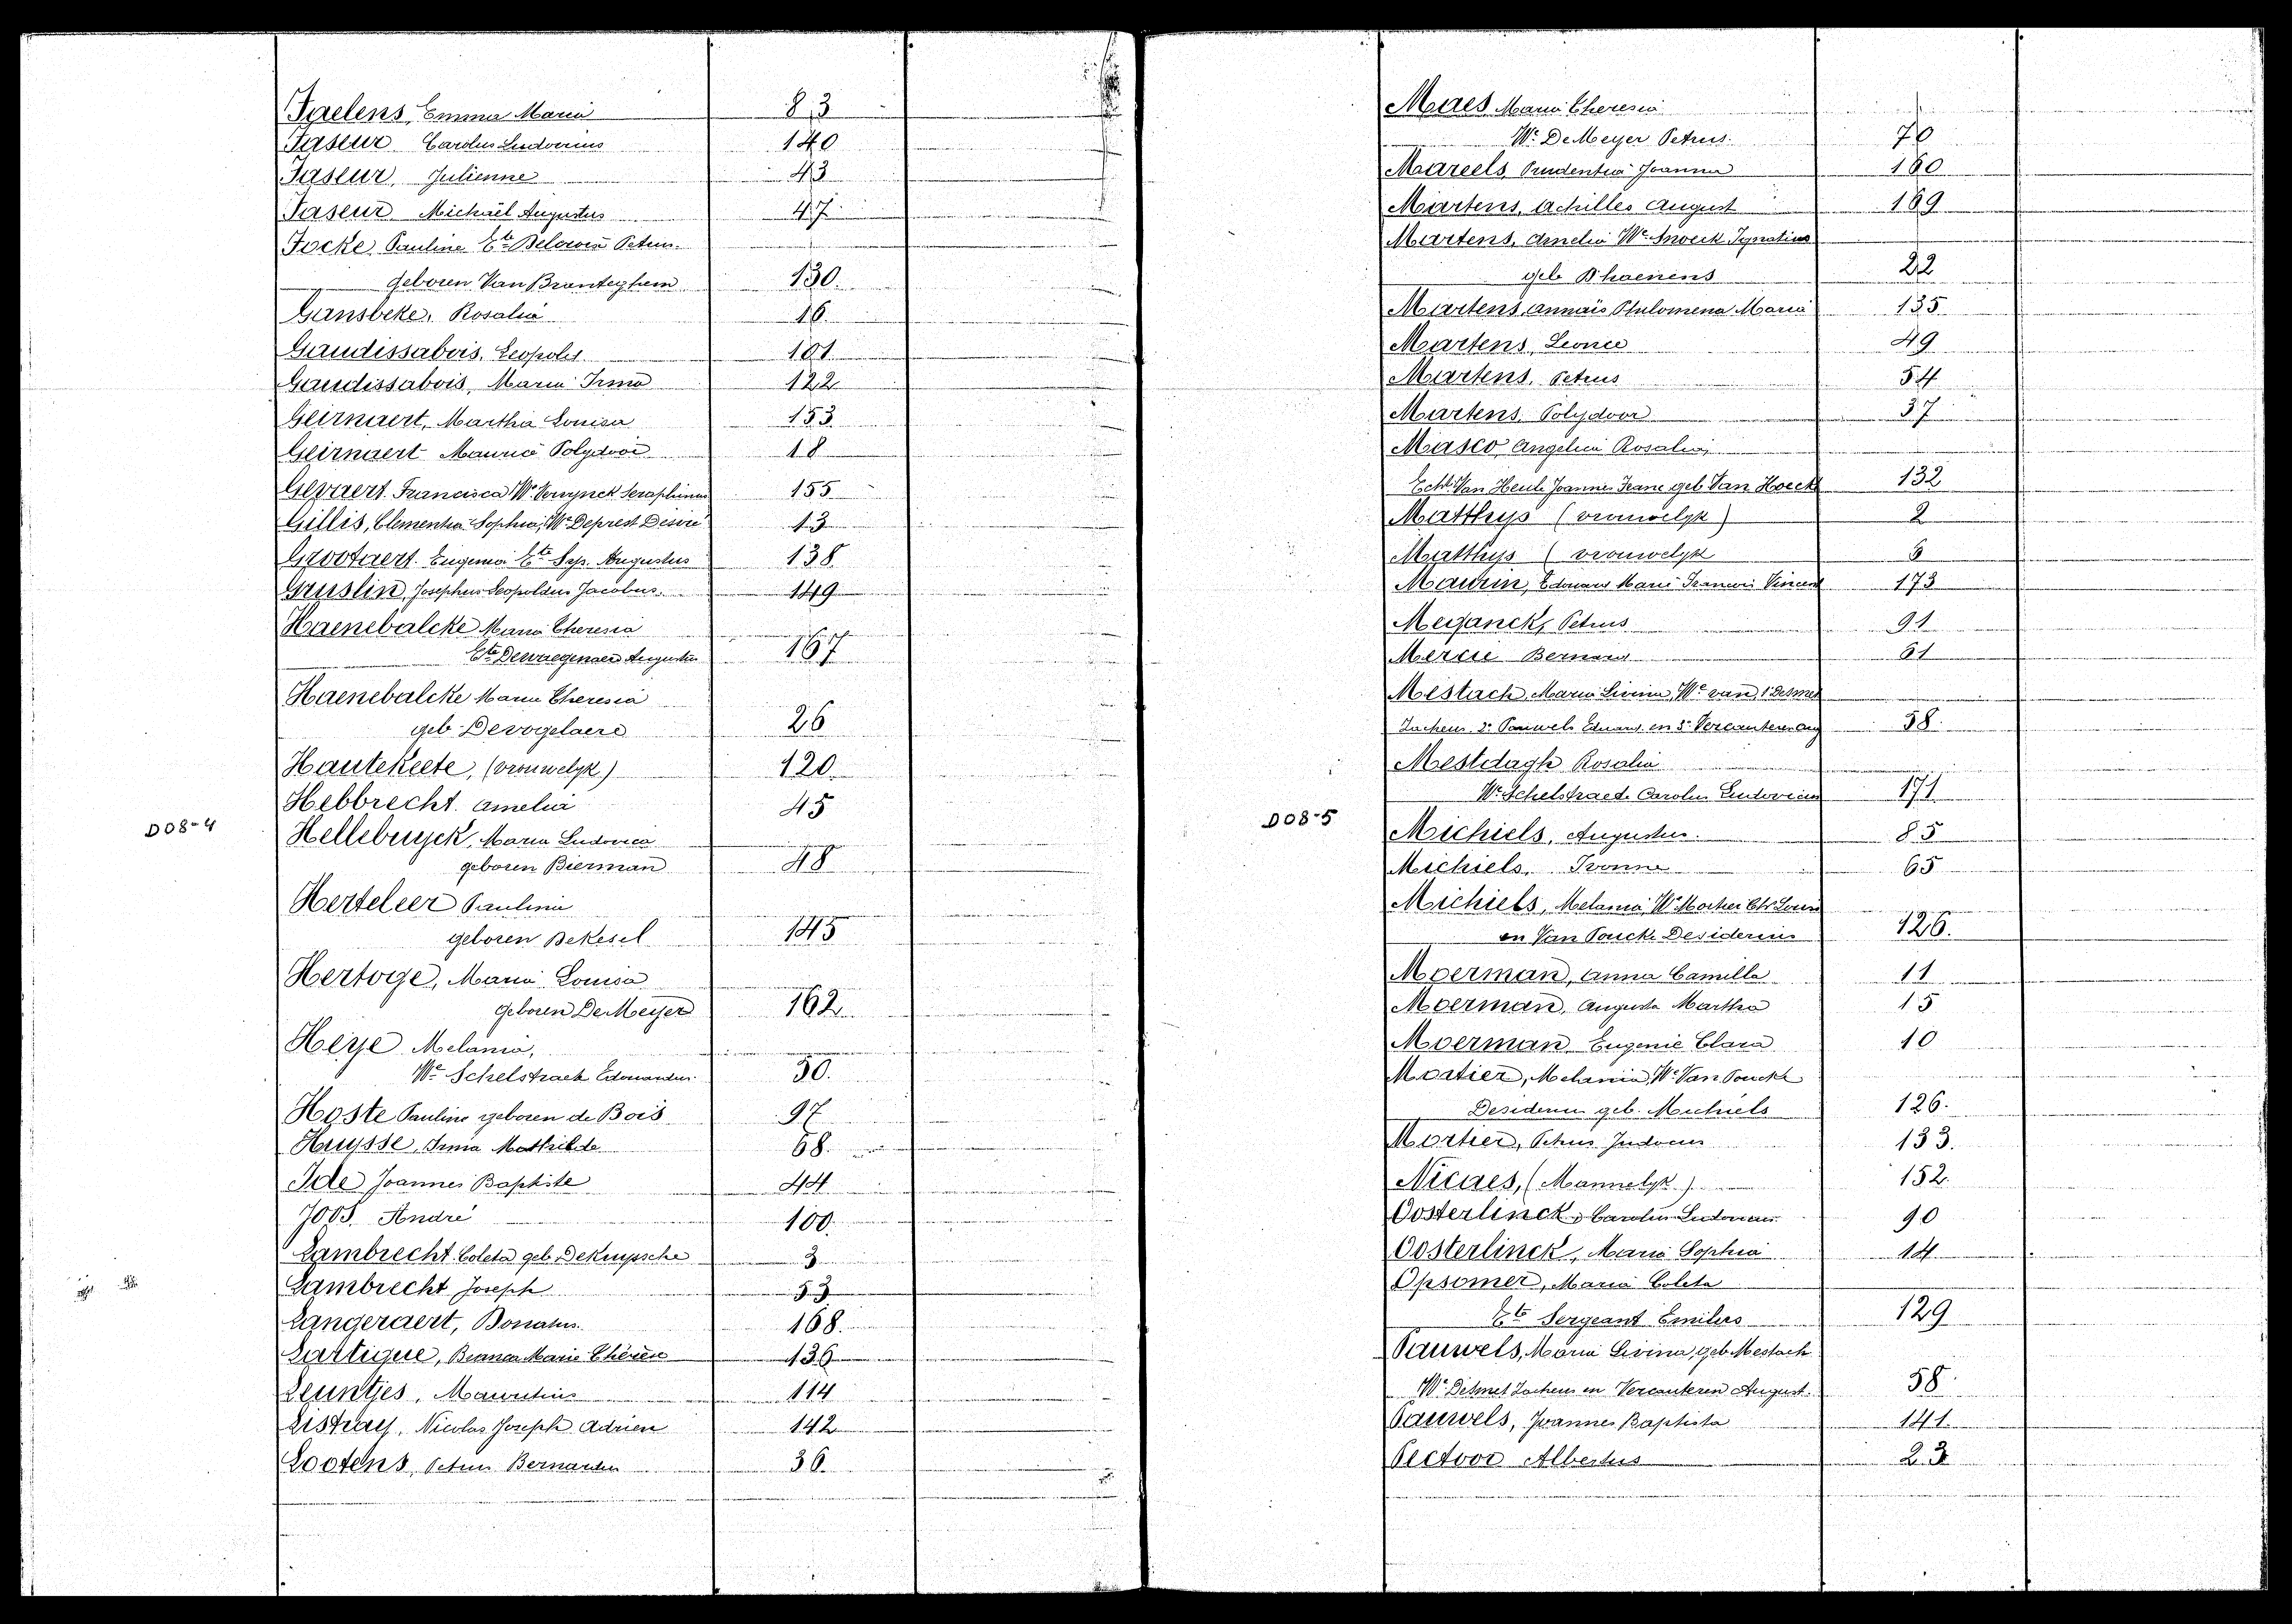 Faelens, Emma Maria 83
Faseur Carolus Ludovicus 140
Faseur, Julienne 43
Faseur Michaël Augustus 47
Focke, Pauline Ete Petrus
geboren Van Branteghem 130.
Gansbeke, Rosalia 16
Gaudissabois, Leopold 101
Gaudissabois, Maria Irma 122
Geirnaert, Martha Louisa 153
Geirnaert Maurice Polydoor 18
Gevaert Francisca We Vernynck Seraphinus 155
Gillis, Clementia Sophia, We Deprest Desiré 13
Grootaert Eugenia Ete Sys. Augustus 138
Gruslin, Josephus Leopoldus Jacobus. 149
Haenebalcke Maria Theresia
Ete Dewaegenaere Augustin 167
Haenebalcke Maria Theresia
geb Devogelaere 26
Hautekeete, (vrouwelyk) 120
Hebbrecht. Amelia 45
D08-4
Hellebuyck, Maria Ludovica
geboren Bierman 48
Herteleer Paulina
geboren Bekesel 145
Hertoge, Maria Louisa
geboren De Meyer 162
Heye Melania,
We Schelstraete Edouardus. 50.
Hoste Pauline geboren de Bois 97
Huysse, Irma Mathilde 68
Ide Joannes Baptiste 44
JOOS. André 100
Lambrecht Coleta geb. DeKuyssche 3
Lambrecht Joseph 53
Langeraert, Donatus. 168
Lartigue, Bianca Marie Thérèse 136
Leuntjes, Mauritius 114
Listray, Nicolas Joseph Adrien 142
Lootens, Petrus Bernardus 36
Maes Maria Theresia
We De Meyer Petrus. 70
Mareels, Prudentia Joanna 160
Martens, Achilles August 169
Martens, Amelia We Snoeck Ignatius
geb Dhaenens 22
Martens, Annaïs Philomena Maria 135
Martens, Leonie 49
Martens, Petrus 54
Martens, Polydoor 37
Masco Angelica Rosalia,
Echt. Van Heule Joannes Franc geb Van Hoecke 132
Matthys (vrouwelyk) 2
Matthys (vrouwelyk 6
Maurin, Edouard Marie Francois Vincent 173
Meganck, Petrus 91
Mercie Bernard 61
Mestach, Maria Livina, We van 1° Desmet
Zacheus 2° Pauwels Eduard en 3° Vercauteren Aug 58.
Mestdagh Rosalia
We Schelstraete Carolus Ludovicus 171
D08-5
Michiels, Augustus. 85
Michiels, Ivonne 65
Michiels, Melania, We Mortier Ch Louis
en Van Poucke Desiderius 126.
Moerman, Anna Camilla 11
Moerman, Augusta Martha 15
Moerman Eugenie Clara 10
Mortier, Melania, We Van Poucke
Desiderius geb. Michiels 126.
Mortier, Petrus Judocus 133.
Nicaes, (Mannelyk) 152
Oosterlinck, Carolus Ludovicus 90
Oosterlinck, Maria Sophia 14
Opsomer, Maria Coleta
Ete Sergeant Emilius 129
Pauwels, Maria Livina, geb. Mestach
We Desmet Zacheus en Vercauteren August. 58
Pauwels, Joannes Baptista 141
Pectoor Albertus 23